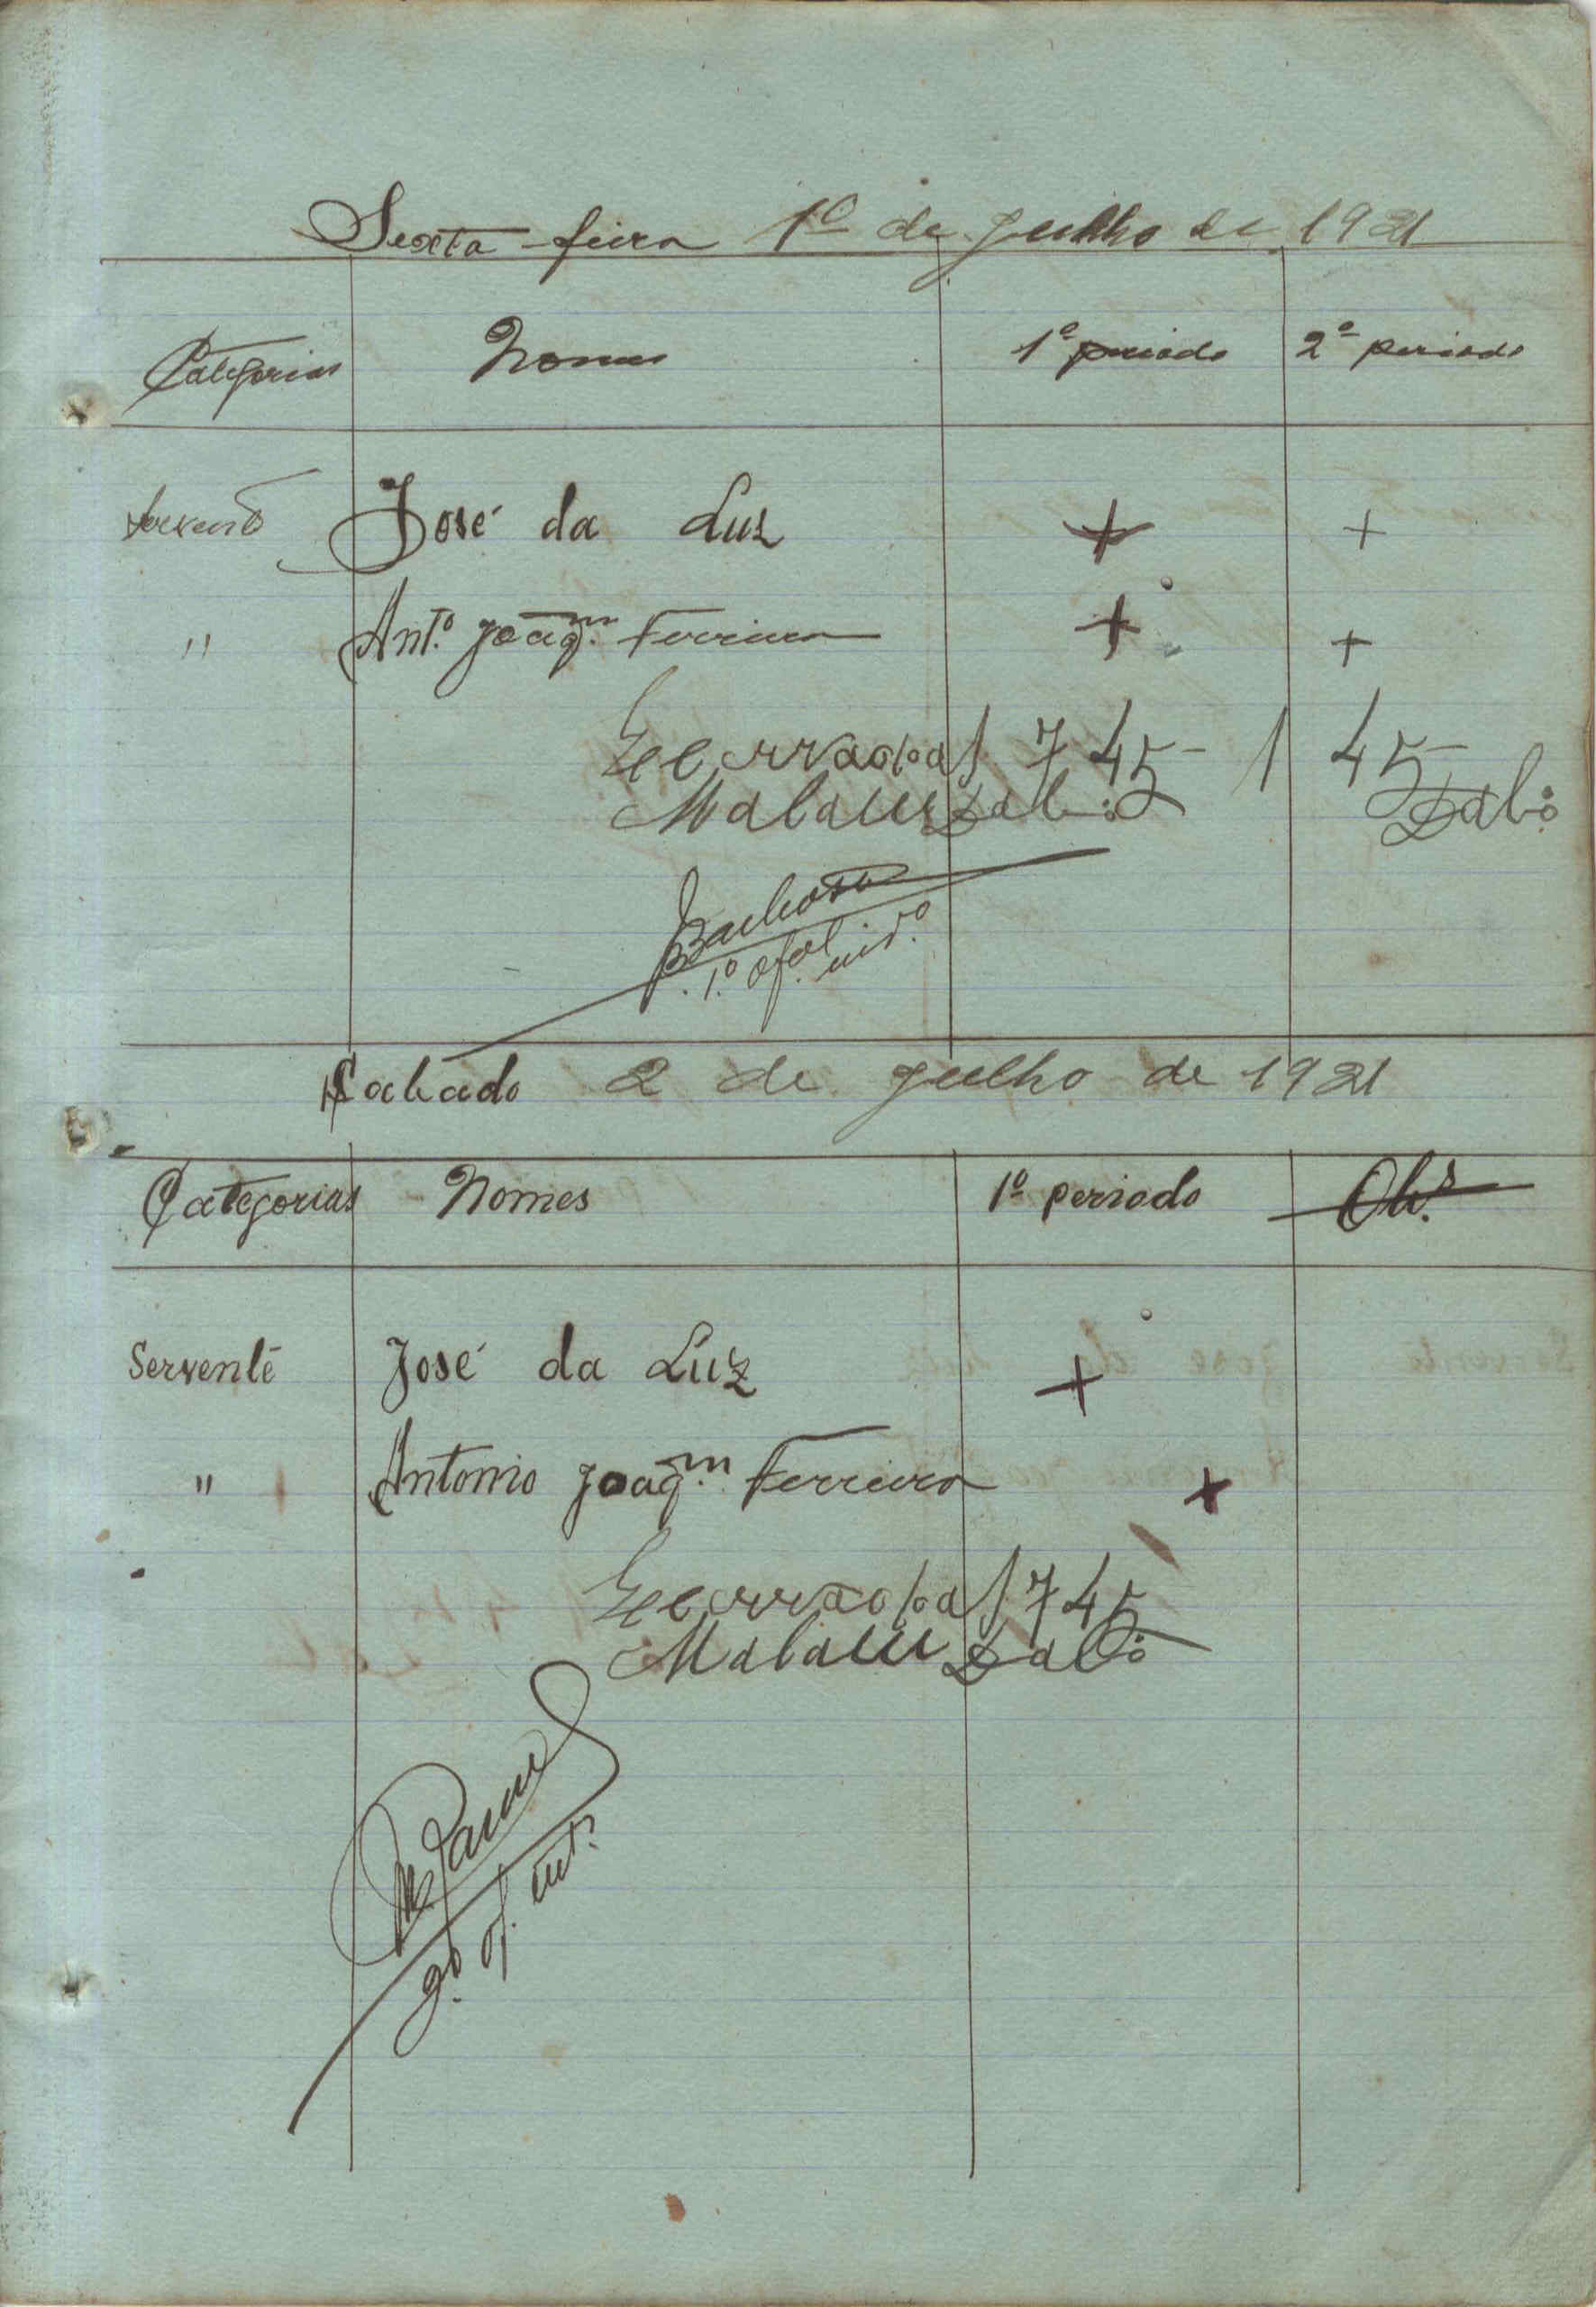 Sexta-feira 1º de Julho de 1921
Categorias Nomes 1º periodo 2º periodo
Servente José da Luz + +
" Antº Joaqm Ferreira + +
745 1 45
Malam Dabó Dabó
Barbosa
1º ofal
Sabado 2 de Julho de 1921
Categorias Nomes 1º periodo Obs
Servente José da Luz +
" Antonio Joaqm Ferreira +
745
Malam Dabó
of. intº